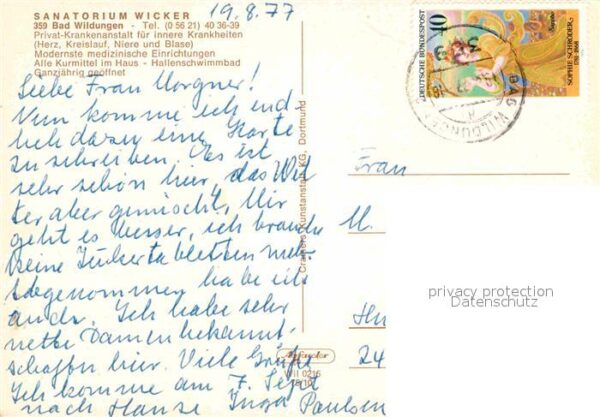 SANATORIUM WICKER
359 Bad Wildungen - Tel. (0 56 21) 40 36-39
Privat-Krankenanstalt für innere Krankheiten
(Herz, Kreislauf, Niere und Blase)
Modernste medizinische Einrichtungen
Alle Kurmittel im Haus - Hallenschwimmbad
Ganzjährig geöffnet
19.8.77
Liebe Frau Morgner!
Nun komme ich end-
lich dazu eine Karte
zu schreiben. Es ist
sehr schön hier, das Wet
ter aber gemischt. Mir
geht es besser, ich brauche
keine Zuckertabletten mehr
abgenommen habe ich
auch. Ich habe sehr
nette Damenbekannt-
schaften hier. Viele Grüße
Ich komme am 7. Sept
nach Hause Inga Paulsen
Cramers Kunstanstalt KG, Dortmund
DEUTSCHE BUNDESPOST
40
SOPHIE SCHRÖDER
BAD WILDUNGEN
Frau
M.
24
Wil 0215
privacy protection
Datenschutz